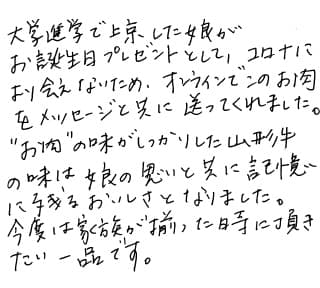 大学進学で上京した娘が
お誕生日プレゼントとして、コロナに
より会えないため、オンラインでこのお肉
をメッセージと共に送ってくれました。
"お肉"の味がしっかりした山形牛
の味は娘の思いと共に記憶
に残るおいしさとなりました。
今度は家族が揃った時に頂き
たい一品です。